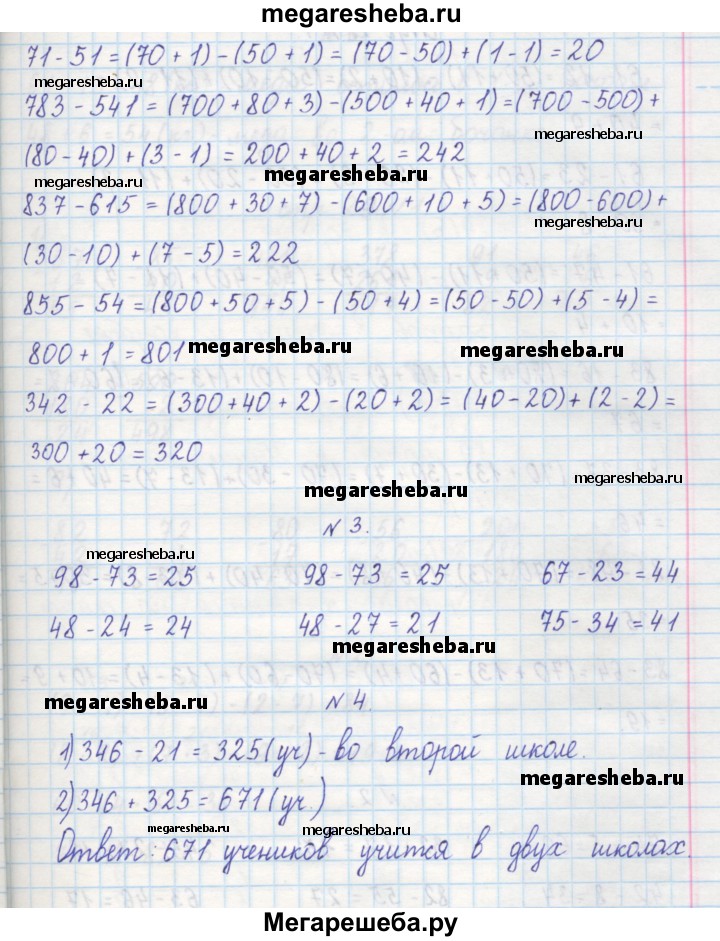 megaresheba.ru
71 - 51 = (70 + 1) - (50 + 1) = (70 - 50) + (1 - 1) = 20
megaresheba.ru
783 - 541 = (700 + 80 + 3) - (500 + 40 + 1) = (700 - 500) +
megaresheba.ru
(80 - 40) + (3 - 1) = 200 + 40 + 2 = 242
megaresheba.ru
megaresheba.ru
837 - 615 = (800 + 30 + 7) - (600 + 10 + 5) = (800 - 600) +
megaresheba.ru
(30 - 10) + (7 - 5) = 222
855 - 54 = (800 + 50 + 5) - (50 + 4) = (50 - 50) + (5 - 4) =
800 + 1 = 801
megaresheba.ru
megaresheba.ru
342 - 22 = (300 + 40 + 2) - (20 + 2) = (40 - 20) + (2 - 2) =
300 + 20 = 320
megaresheba.ru
megaresheba.ru
N 3.
megaresheba.ru
98 - 73 = 25 98 - 73 = 25 67 - 23 = 44
48 - 24 = 24 48 - 27 = 21 75 - 34 = 41
megaresheba.ru
megaresheba.ru
N 4.
1) 346 - 21 = 325 (уч) - во второй школе.
megaresheba.ru
2) 346 + 325 = 671 (уч.)
megaresheba.ru
megaresheba.ru
Ответ: 671 учеников учится в двух школах.
Мегарешеба.ру